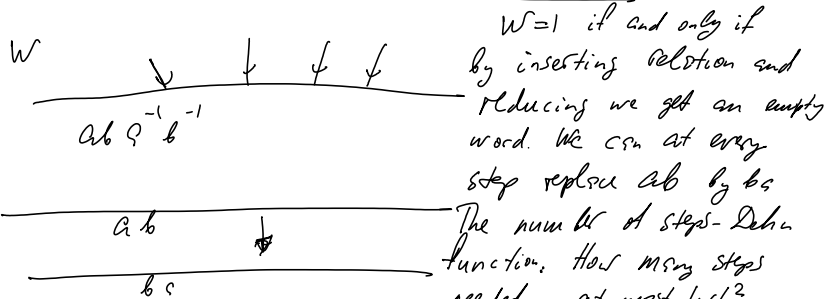 W
ab a⁻¹ b⁻¹
ab
ba
W=1 if and only if
by inserting relation and
reducing we get an empty
word. We can at every
step replace ab by ba
The number of steps - Dehn
function. How many steps
needed at most